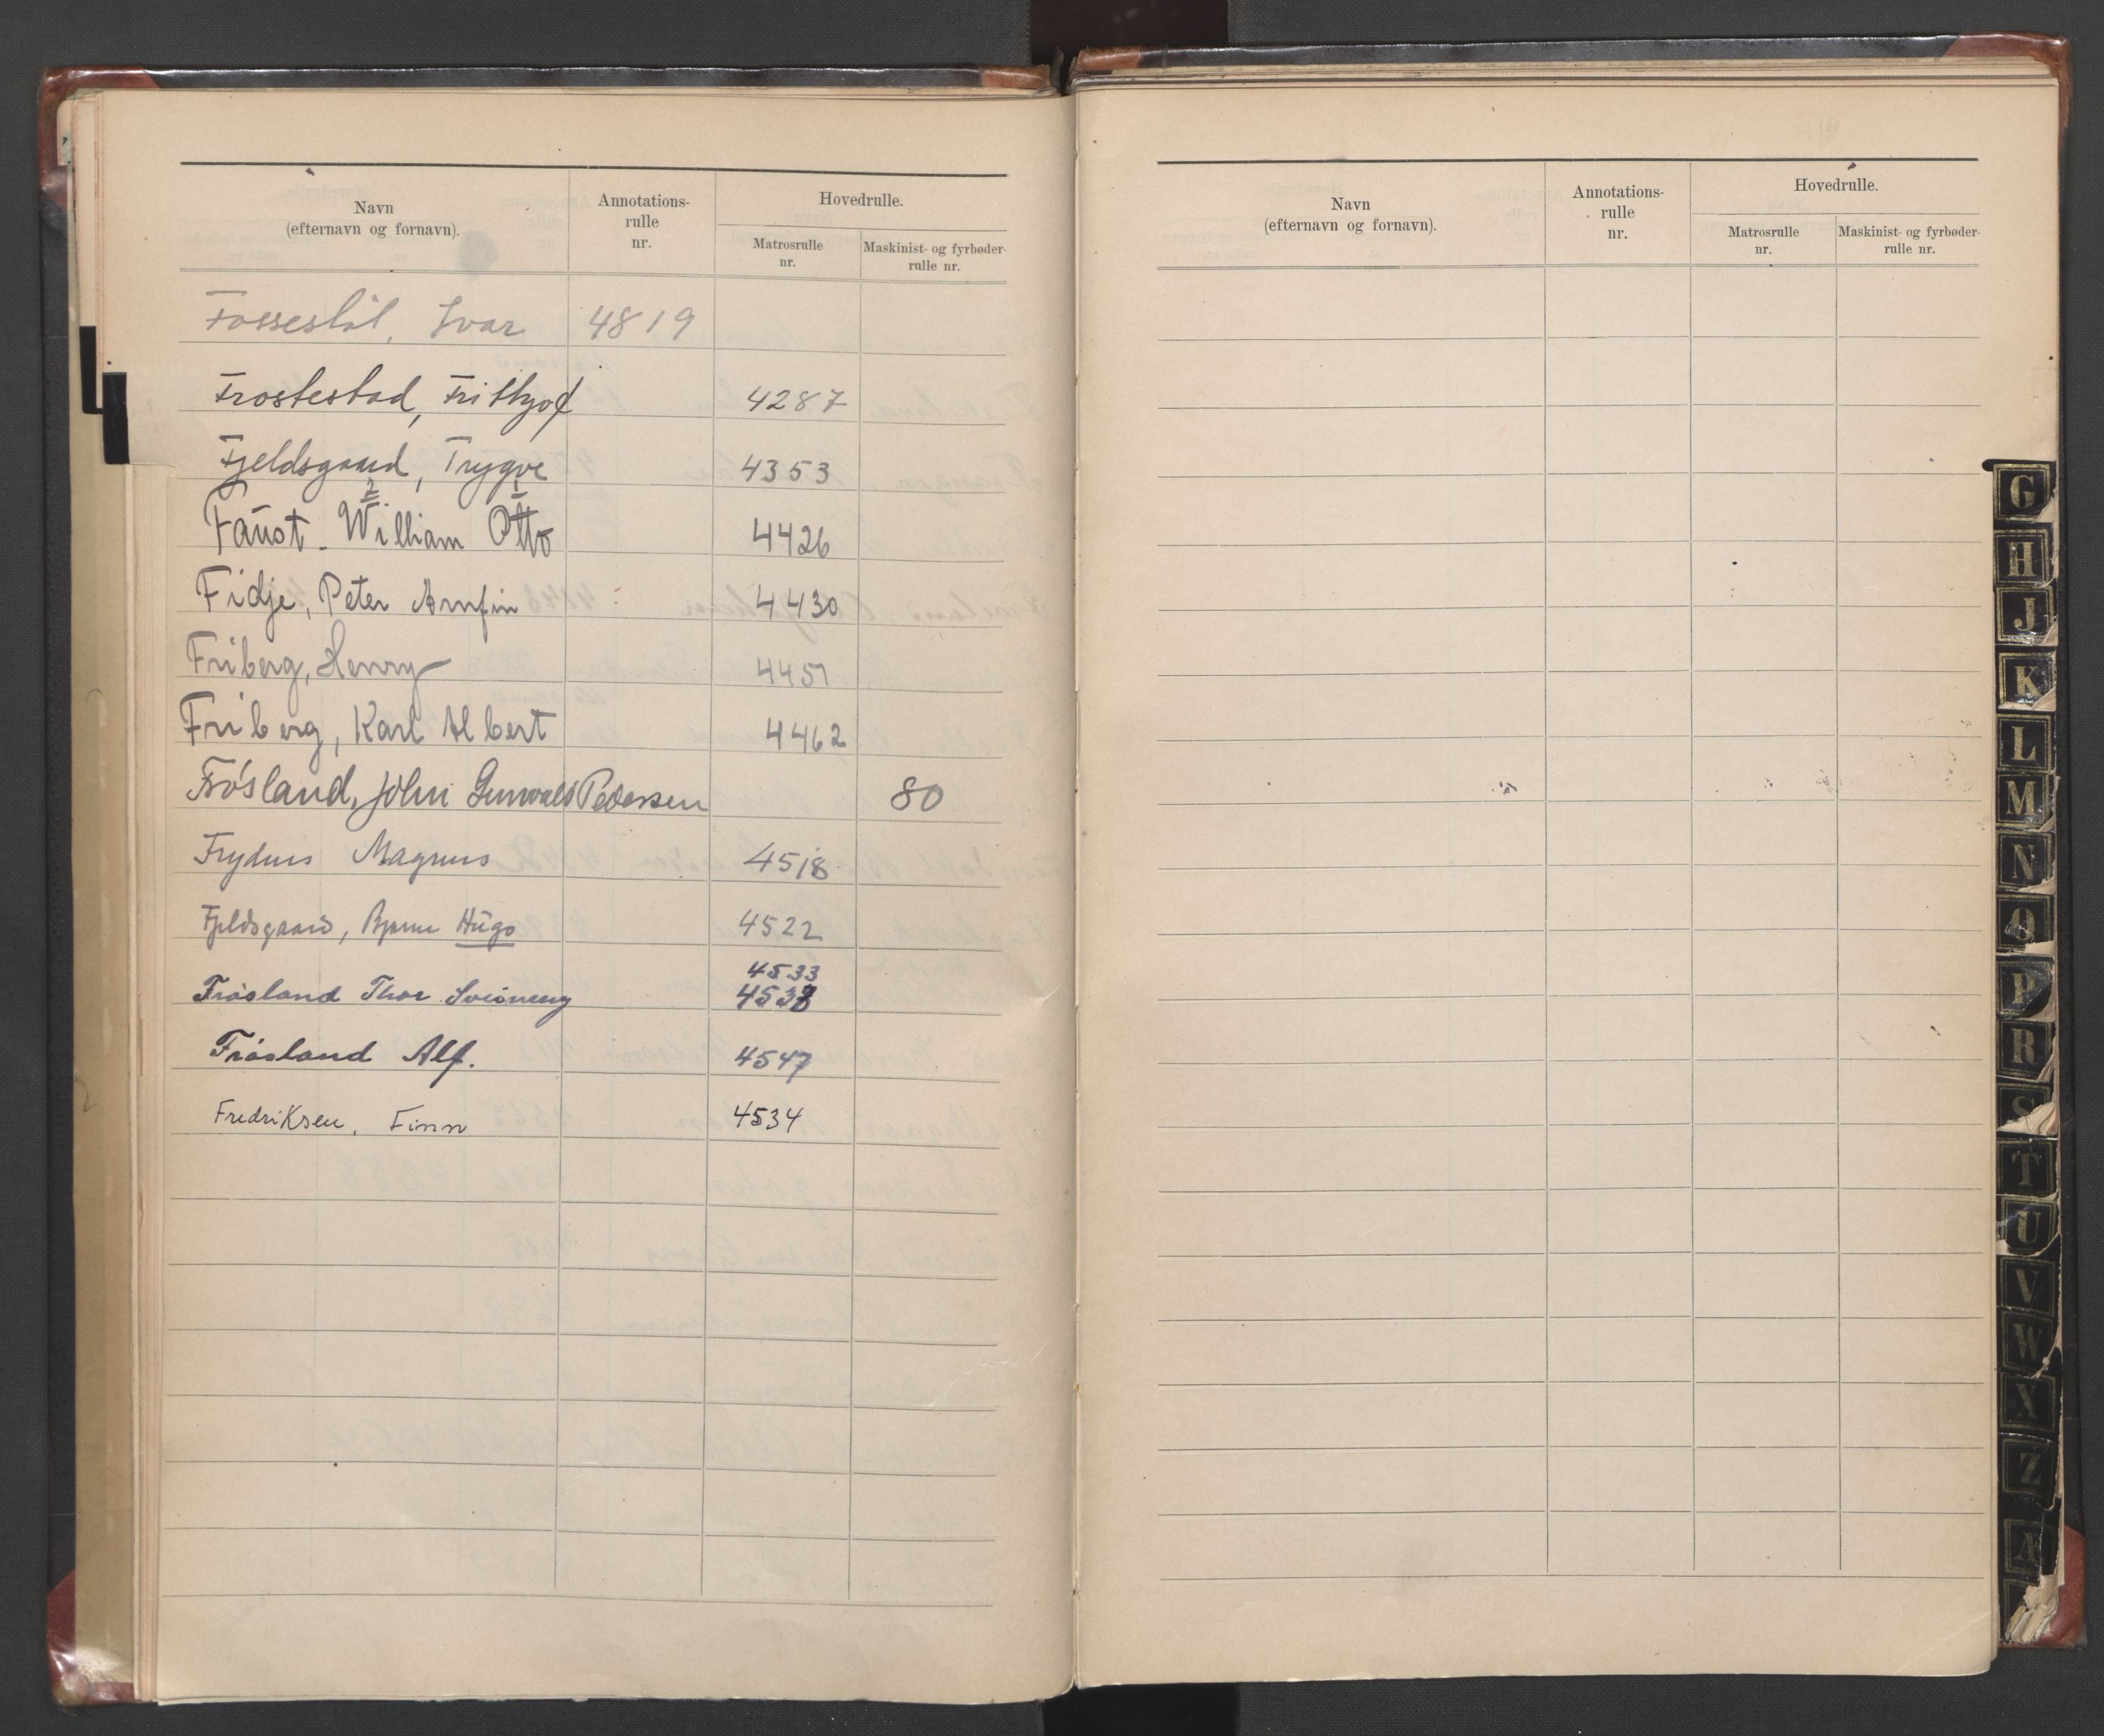 Navn
(efternavn og fornavn).
Annotations-
rulle
nr.
Hovedrulle.
Matrosrulle
nr.
Maskinist- og fyrbøder-
rulle nr.
Fossestøl, Ivar 4819
Frostestad, Frithjof 4287
Fjeldsgaard, Trygve 4353
2 1
Faust - William Otto 4426
Fidje, Peter Arnfin 4430
Friberg, Henry 4451
Friberg, Karl Albert 4462
Frøsland, John Gunvald Pedersen 80
Magnus 4518
Fjeldsgaard, Bjarne Hugo 4522
4533
Frøsland Thor 4538
Frøsland Alf. 4547
Fredriksen, Finn 4534
Navn
(efternavn og fornavn).
Annotations-
rulle
nr.
Hovedrulle.
Matrosrulle
nr.
Maskinist- og fyrbøder-
rulle nr.
G
H
J
K
L
M
N
O
P
R
S
T
U
V
W
X
Z